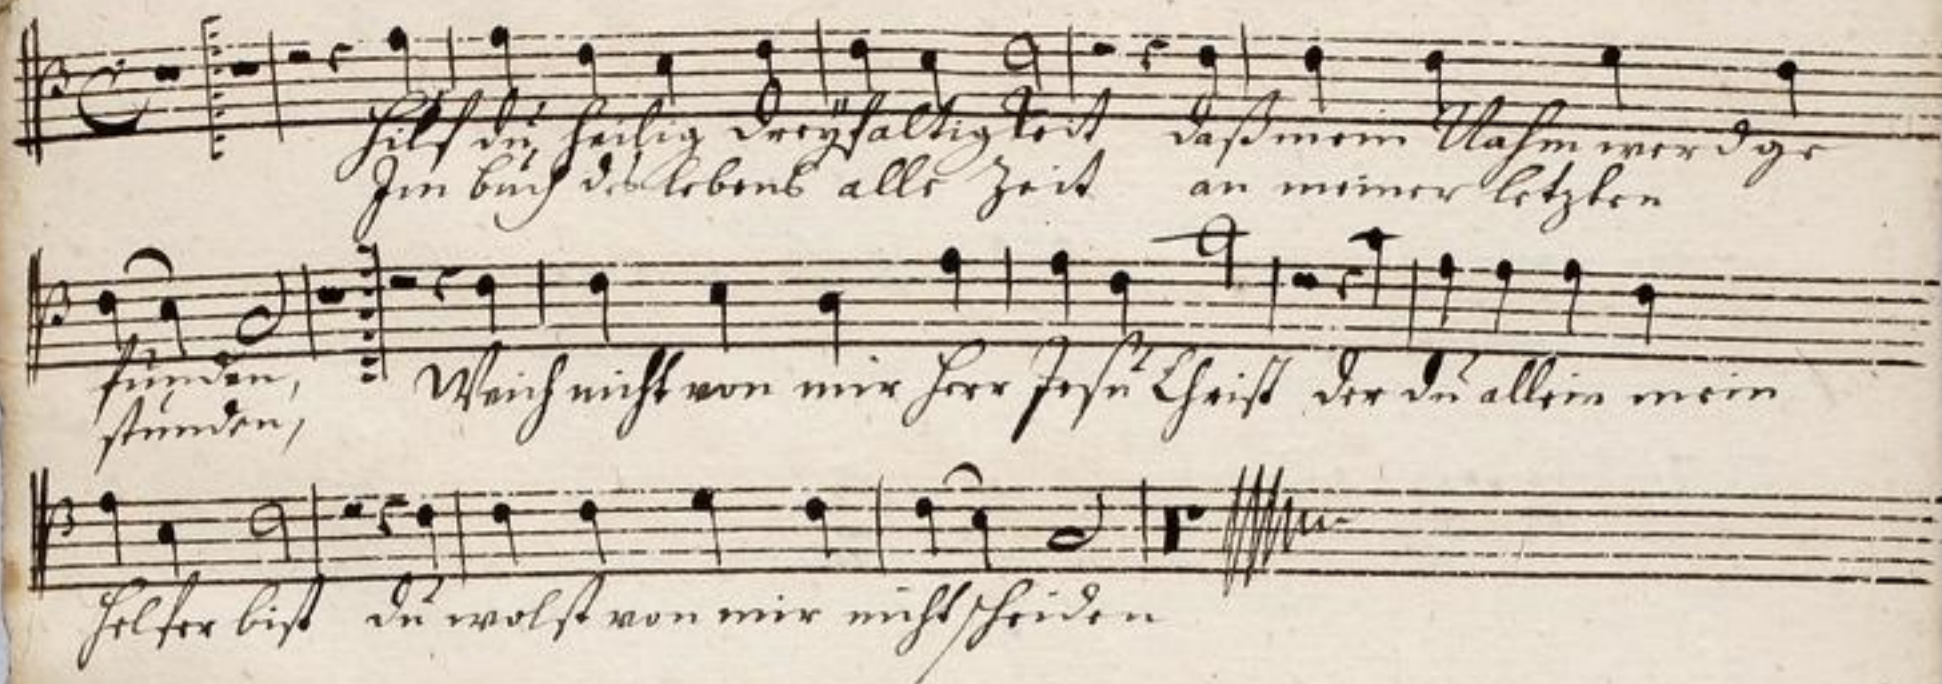 Hilf du, heilig Dreyfaltigkeit daß mein Nahm werd ge
Im buch des lebens alle Zeit an meiner letzten
funden,
stunden,
Weich nicht von mir Herr Jesu Christ der du allein mein
Helfer bist du wolst von mir nicht scheiden